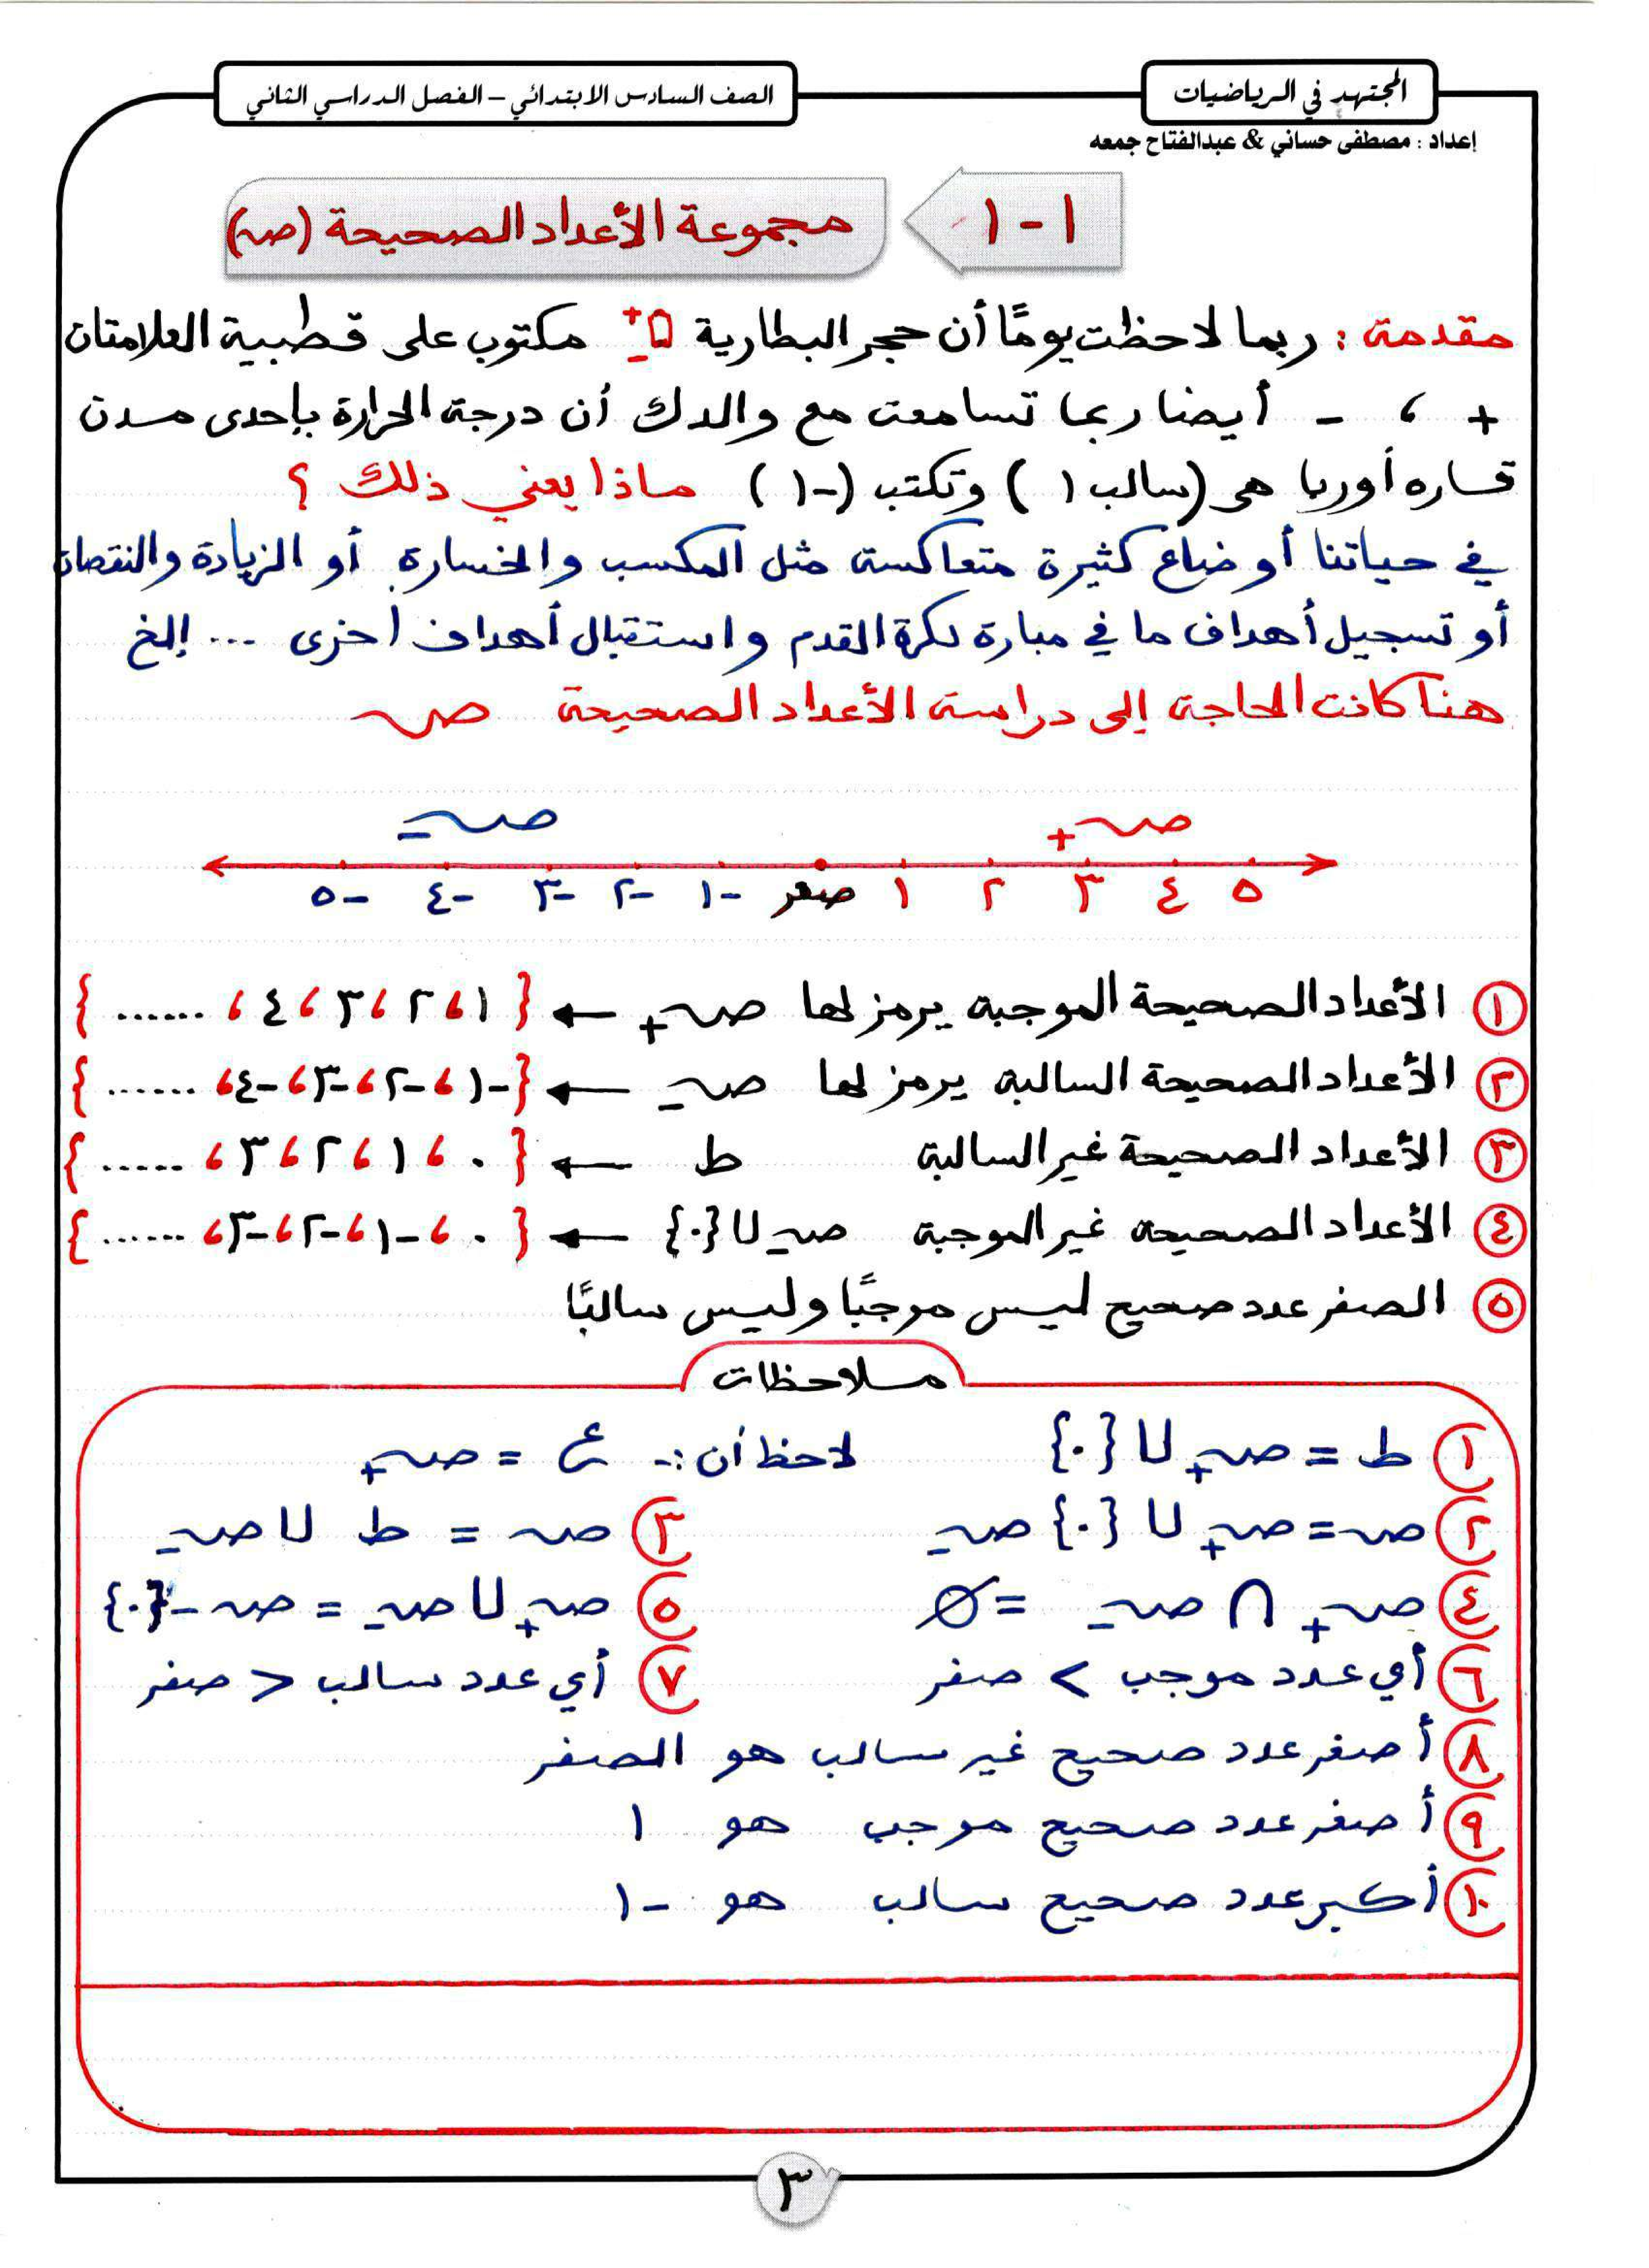 المجتهد في الرياضيات
الصف السادس الابتدائي – الفصل الدراسي الثاني
إعداد : مصطفى حساني & عبدالفتاح جمعه
١ - ١
مجموعة الأعداد الصحيحة (صـ)
مقدمة : ربما لاحظت يومًا أن حجر البطارية + - مكتوب على قطبية العلامتان
+ ، - أيضا ربما تسامعت مع والدك أن درجة الحرارة بإحدى مدن
قاره أوربا هى (سالب ١) وتكتب (-١) ماذا يعني ذلك ؟
في حياتنا أوضاع كثيرة متعاكسة مثل المكسب والخسارة أو الزيادة والنقصان
أو تسجيل أهداف ما في مبارة لكرة القدم واستقبال أهداف أخرى ... إلخ
هنا كانت الحاجة إلى دراسة الأعداد الصحيحة صـ
صـ+ صـ-
٥ ٤ ٣ ٢ ١ صفر -١ -٢ -٣ -٤ -٥
١ الأعداد الصحيحة الموجبة يرمز لها صـ+ ← {١ ، ٢ ، ٣ ، ٤ ، ......}
٢ الأعداد الصحيحة السالبة يرمز لها صـ- ← {-١ ، -٢ ، -٣ ، -٤ ، ......}
٣ الأعداد الصحيحة غير السالبة ط ← {٠ ، ١ ، ٢ ، ٣ ، .....}
٤ الأعداد الصحيحة غير الموجبة صـ- ∪ {٠} ← {٠ ، -١ ، -٢ ، -٣ ، ......}
٥ الصفر عدد صحيح ليس موجبًا وليس سالبًا
ملاحظات
١ ط = صـ+ ∪ {٠} لاحظ أن :- ع = صـ+
٢ صـ = صـ+ ∪ {٠} صـ- ٣ صـ = ط ∪ صـ-
٤ صـ+ ∩ صـ- = ∅ ٥ صـ+ ∪ صـ- = صـ - {٠}
٦ أي عدد موجب > صفر ٧ أي عدد سالب < صفر
٨ أصغر عدد صحيح غير سالب هو الصفر
٩ أصغر عدد صحيح موجب هو ١
١٠ أكبر عدد صحيح سالب هو -١
٣